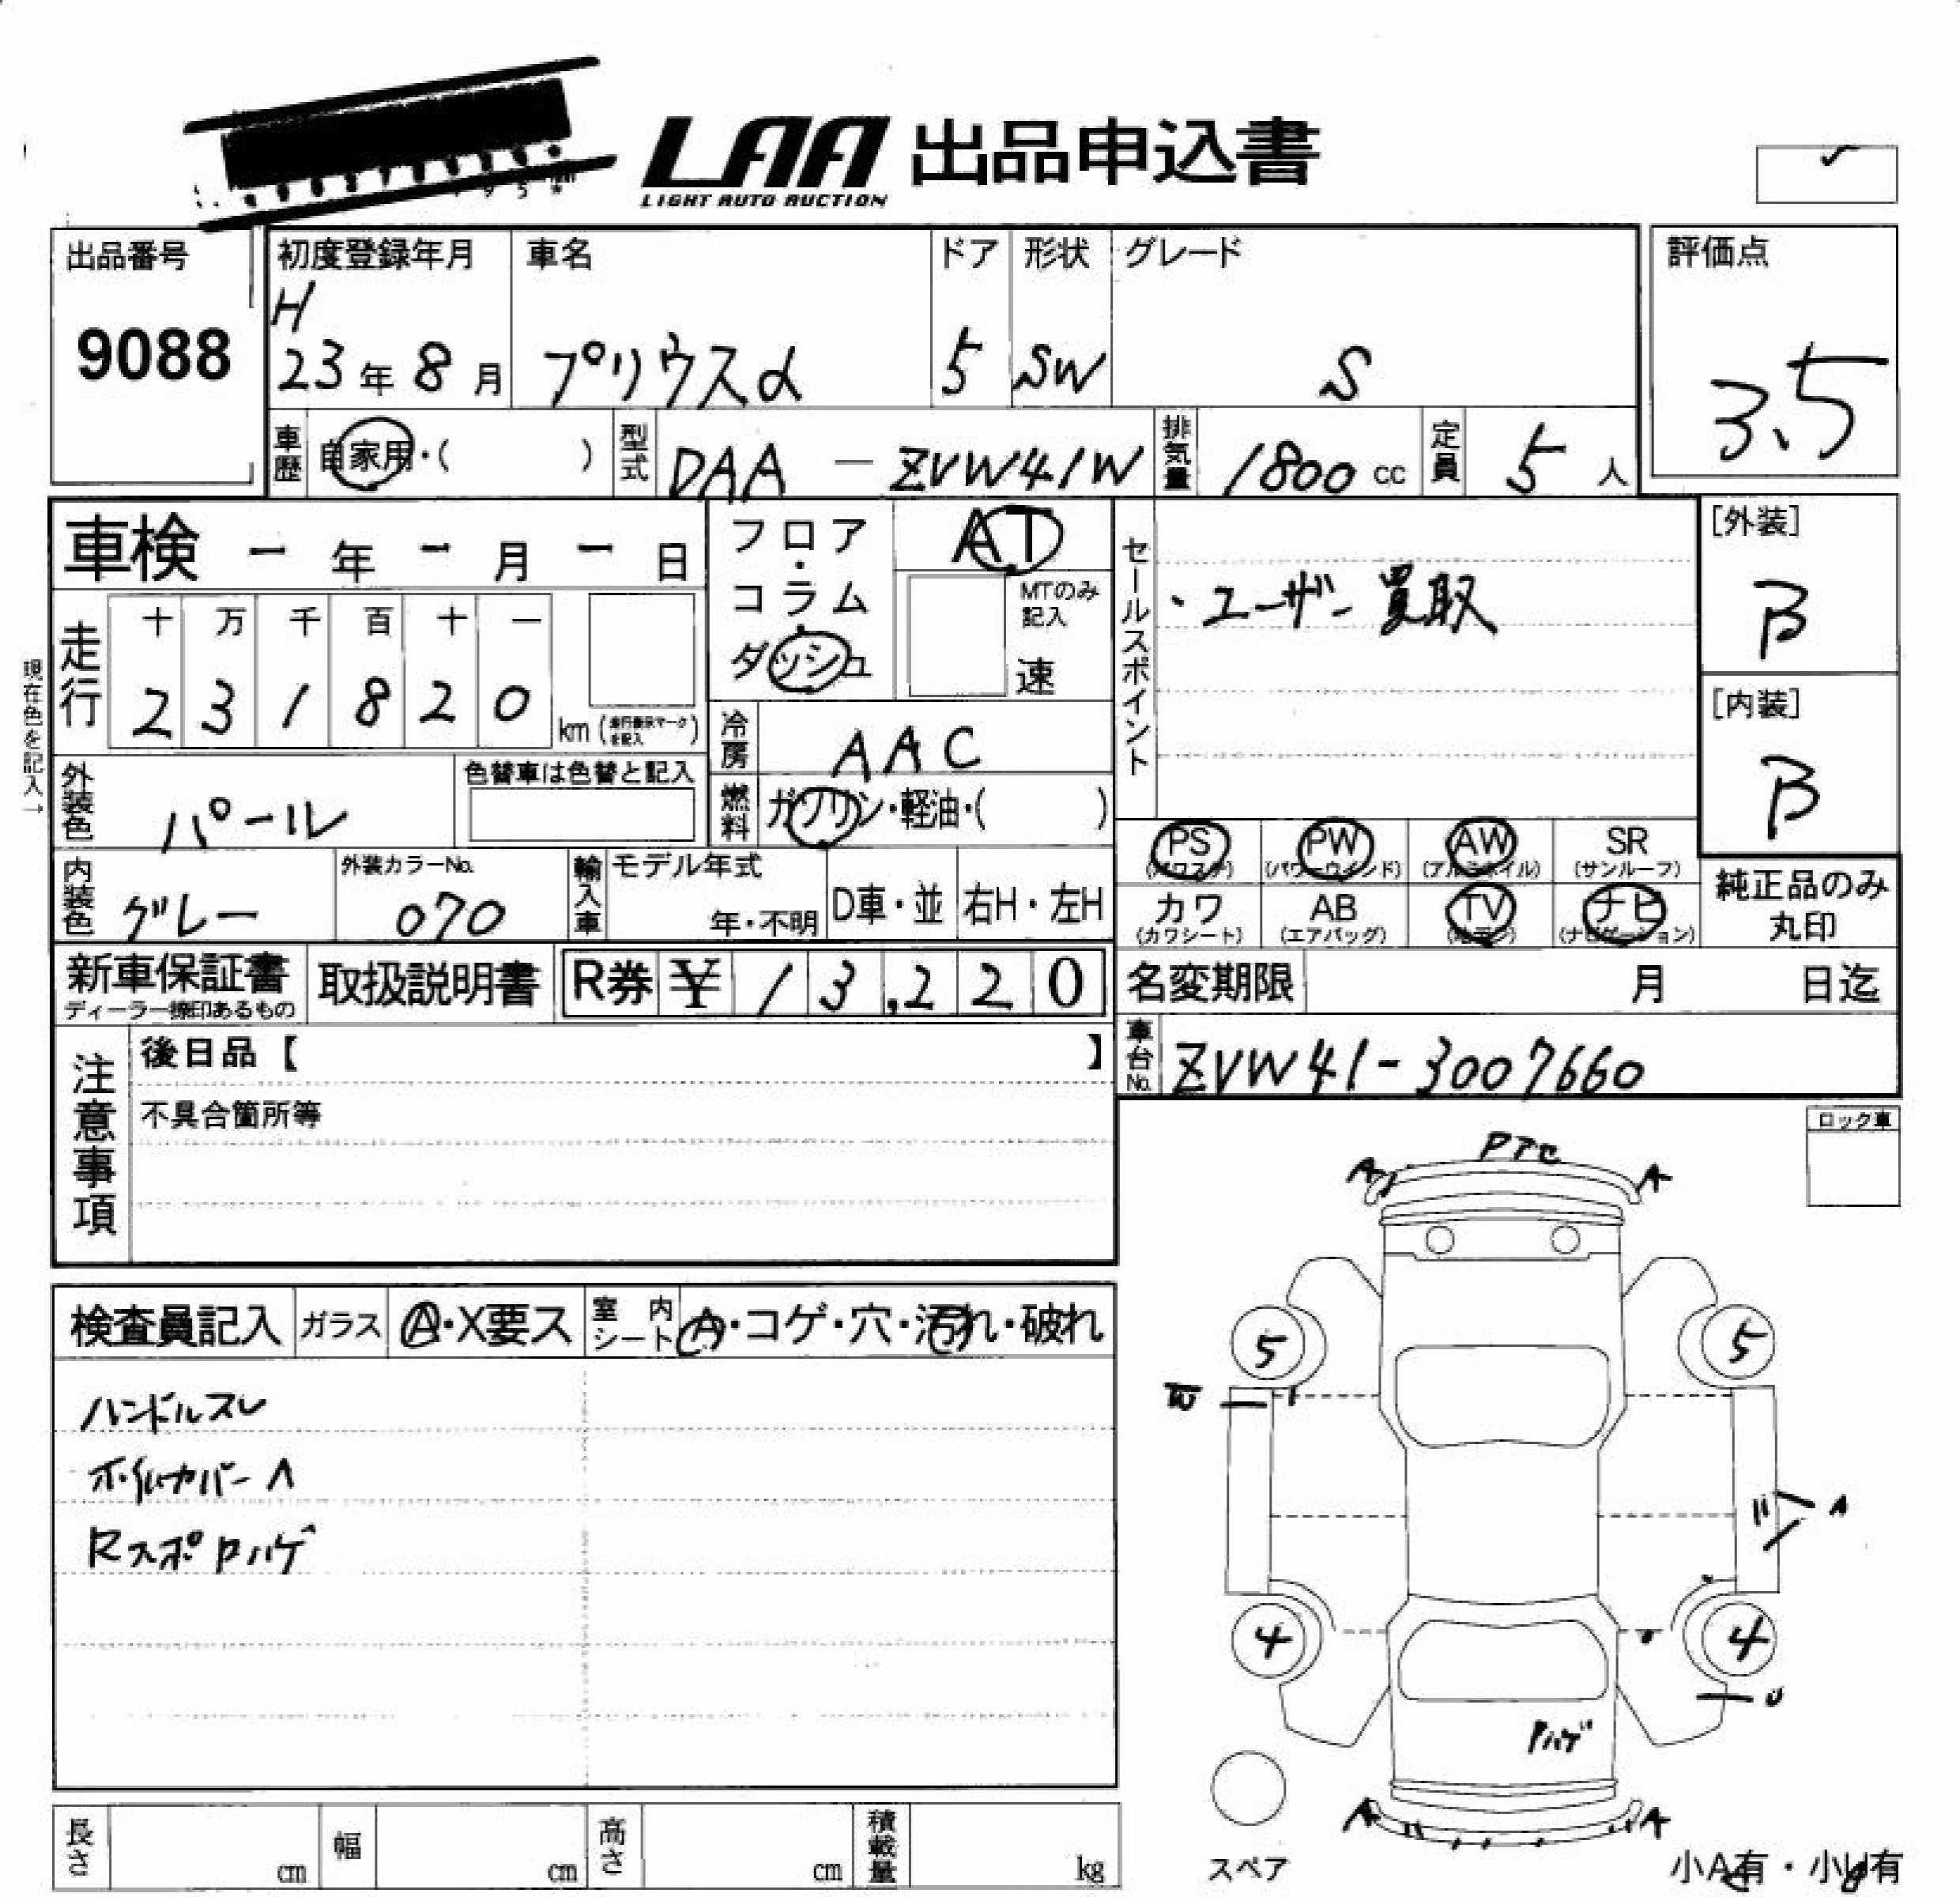 LAA 出品申込書
LIGHT AUTO AUCTION
出品番号
9088
初度登録年月
H
23年 8月
車名
プリウスα
ドア
5
形状
SW
グレード
S
評価点
3.5
車歴
自家用・( )
型式
DAA - ZVW41W
排気量
1800 cc
定員
5 人
車検 - 年 - 月 - 日
フロア・コラム・ダッシュ
AT
MTのみ記入
速
セールスポイント
・ユーザー買取
[外装]
B
[内装]
B
現在色を記入→
走行
十 万 千 百 十 一
2 3 1 8 2 0
km (走行表示マークを記入)
冷房
AAC
外装色
パール
色替車は色替と記入
燃料
ガソリン・軽油・( )
PS
(パワステ)
PW
(パワーウインド)
AW
(アルミホイル)
SR
(サンルーフ)
内装色
グレー
外装カラーNo.
070
輸入車
モデル年式
年・不明
D車・並
右H・左H
カワ
(カワシート)
AB
(エアバッグ)
TV
(地デジ)
ナビ
(ナビゲーション)
純正品のみ
丸印
新車保証書
ディーラー捺印あるもの
取扱説明書
R券 ¥ 1 3,2 2 0
名変期限 月 日迄
車台No.
ZVW41-3007660
注意事項
後日品【 】
不具合箇所等
ロック車
検査員記入
ガラス
A・X要ス
室内シート
A・コゲ・穴・汚れ・破れ
ハンドルスレ
ホイルカバーA
RスポPハゲ
A
A
5
5
W
A
4
4
U
Pハゲ
A
A
スペア
小A有・小U有
長さ cm
幅 cm
高さ cm
積載量 kg